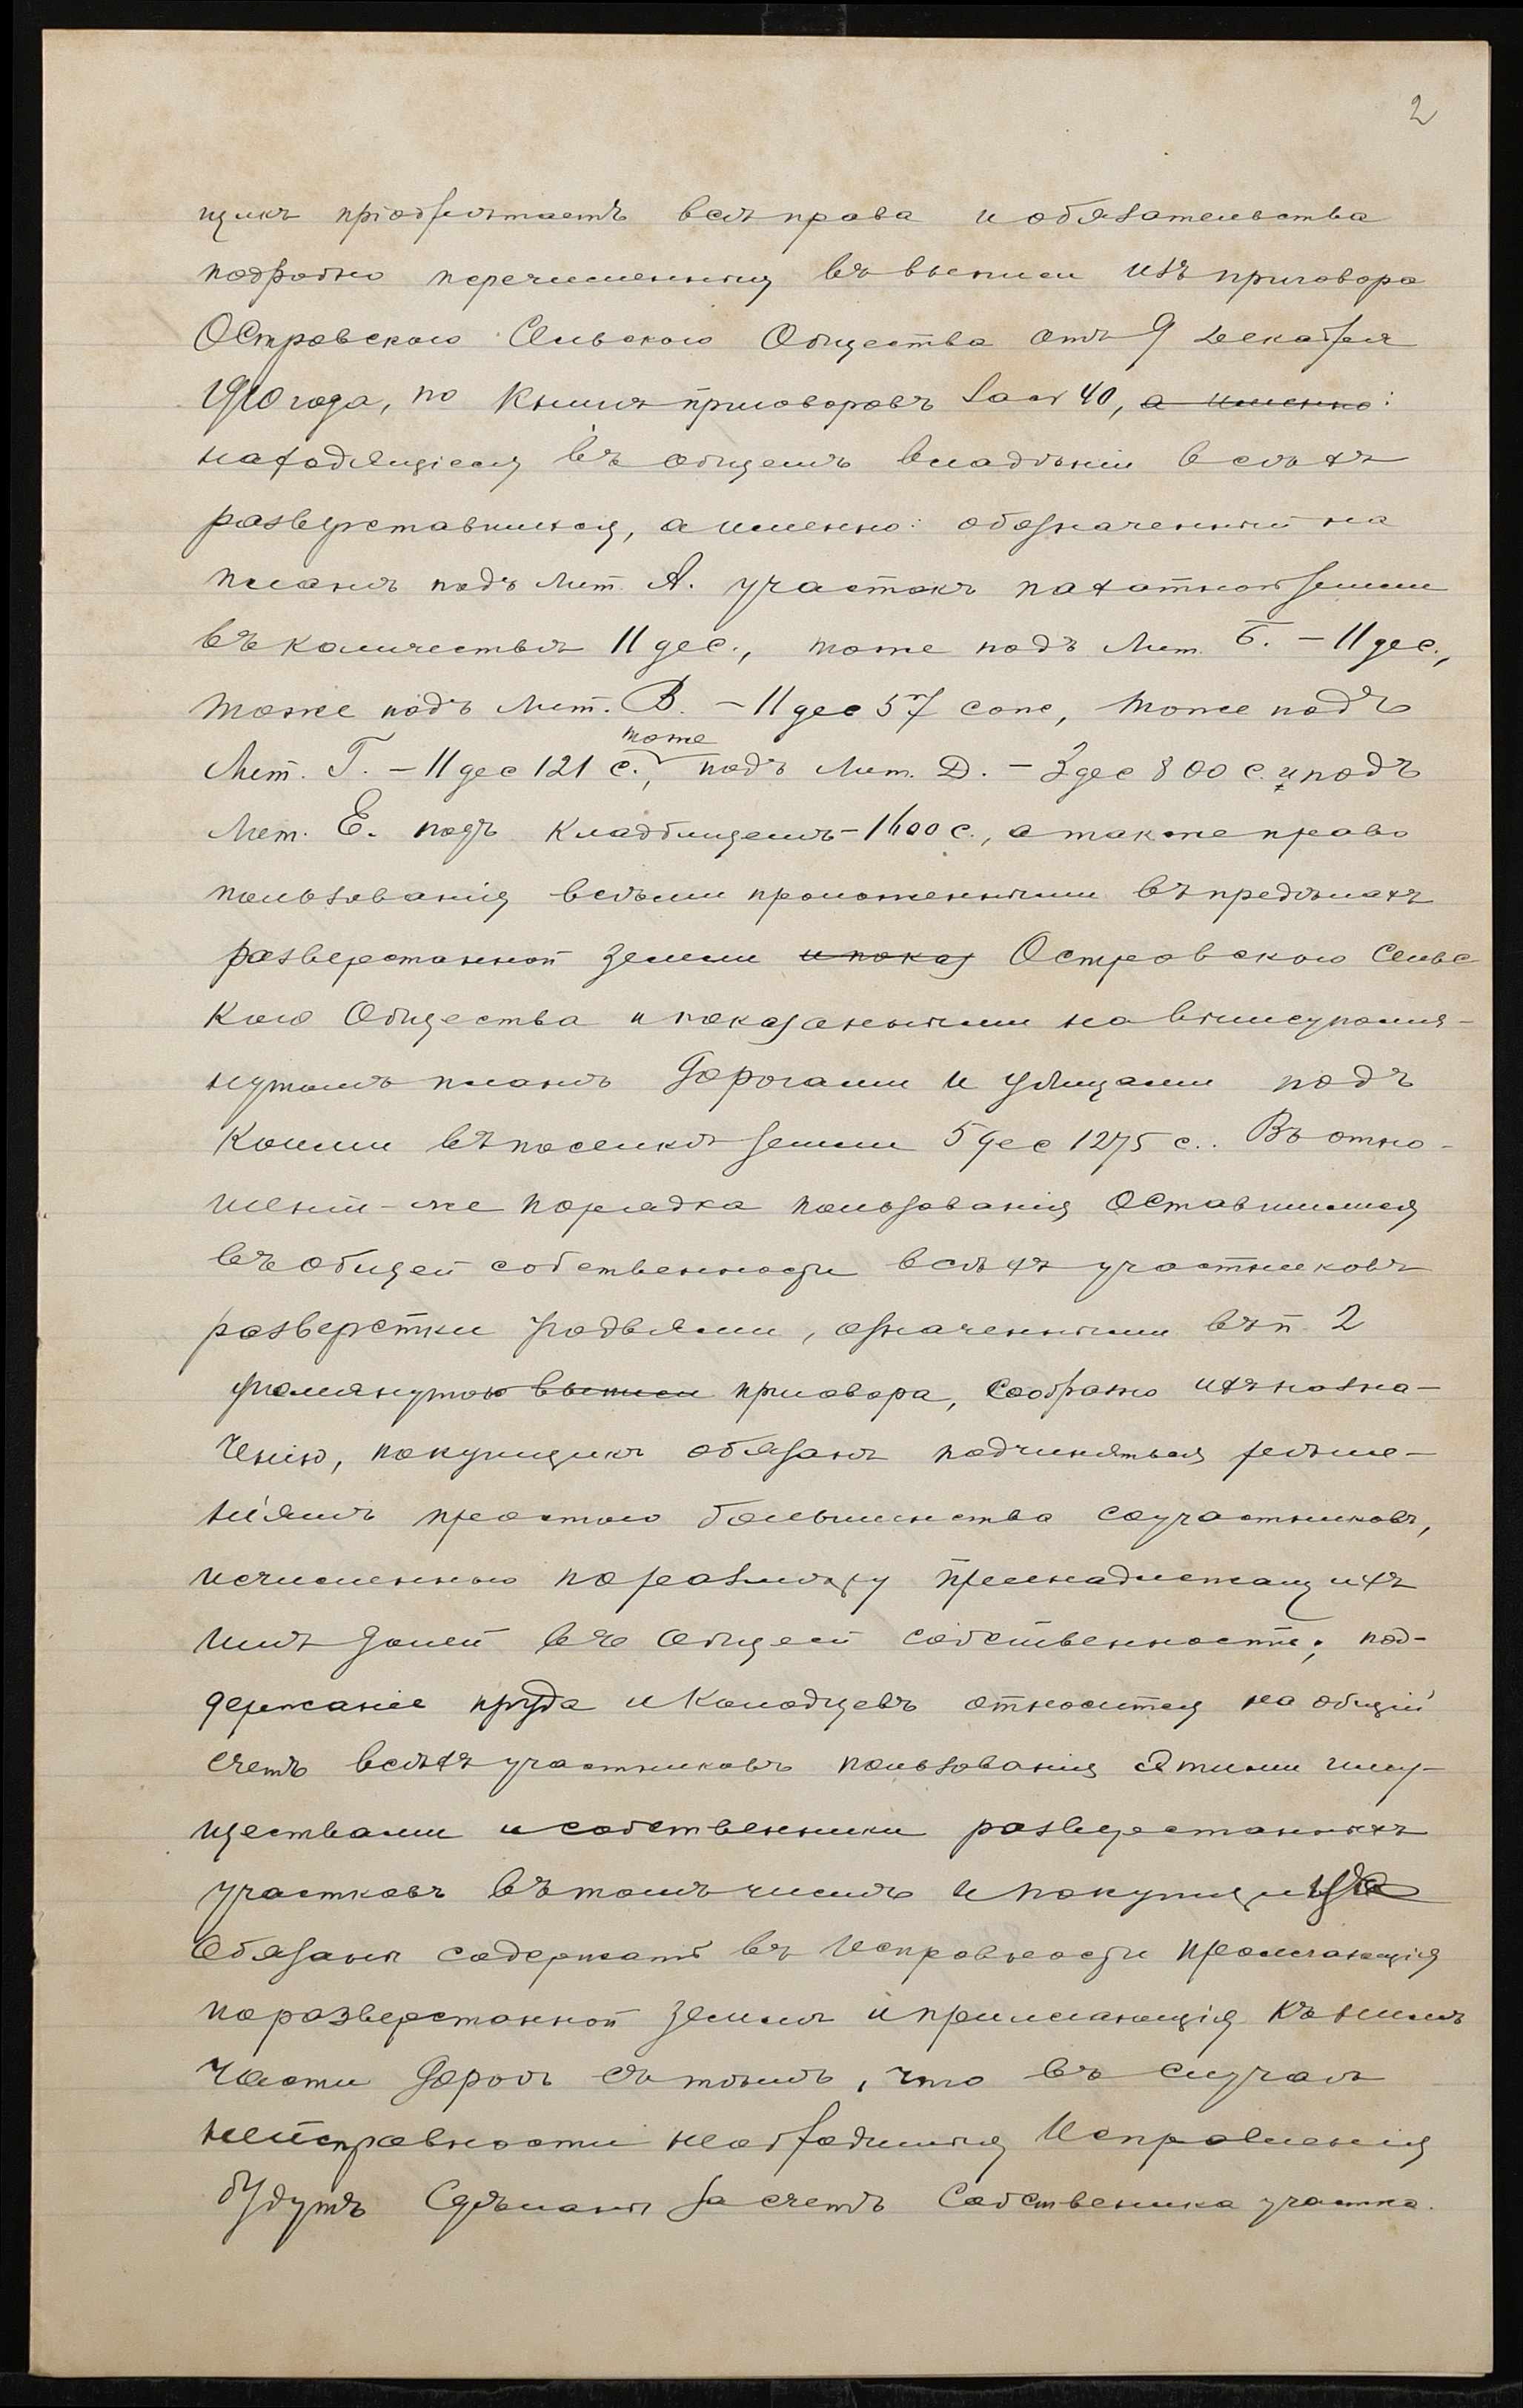 2
щикъ пріобрѣтаетъ всѣ права и обязательства
подробно перечисленныя въ выписи изъ приговора
Островского Сельского Общества отъ 9 Декабря
1910 года, по книгѣ приговоровъ за № 40, а именно:
находящіеся въ общемъ владѣніи всѣхъ
разверставшихся, а именно: обозначенный на
планѣ подъ лит. А. участокъ пахатной земли
въ количествѣ 11 дес., тоже подъ лит. Б. – 11 дес.,
тоже подъ лит. В. – 11 дес 57 саже, тоже подъ
тоже
Лит. Г. – 11 дес 121 с., подъ лит. Д. – 3 дес 800 с. и подъ
лит. Е. подъ кладбищемъ – 1600 с., а также право
пользованія всѣми проложенными въ предѣлахъ
разверстанной земли и показ Островского Сельс
кого Общества и показанными на вышеупомя-
нутомъ планѣ дорогами и улицами подъ
коими въ поселкѣ земли 5 дес 1275 с.. Въ отно-
шеніи-же порядка пользованія оставшимися
въ общей собственности всѣхъ участниковъ
разверстки угодьями, означенными въ п. 2
упомянутого выписи приговора, сообразно ихъ назна-
ченію, покупщикъ обязанъ подчиняться рѣше-
ніямъ простого большинства соучастниковъ,
исчисленного по размѣру принадлежащихъ
имъ долей въ общей собственности; под-
держаніе пруда и колодцевъ относится на общій
счетъ всѣхъ участниковъ пользованія этими иму-
ществами и собственники разверстанныхъ
участковъ въ томъ числѣ и покупщикъ
обязаны содержать въ исправности пролегающія
по разверстанной землѣ и прилегающія къ нимъ
части дорогъ съ тѣмъ, что въ случаѣ
неисправности необходимыя исправленія
будутъ сдѣланы за счетъ собственника участка.